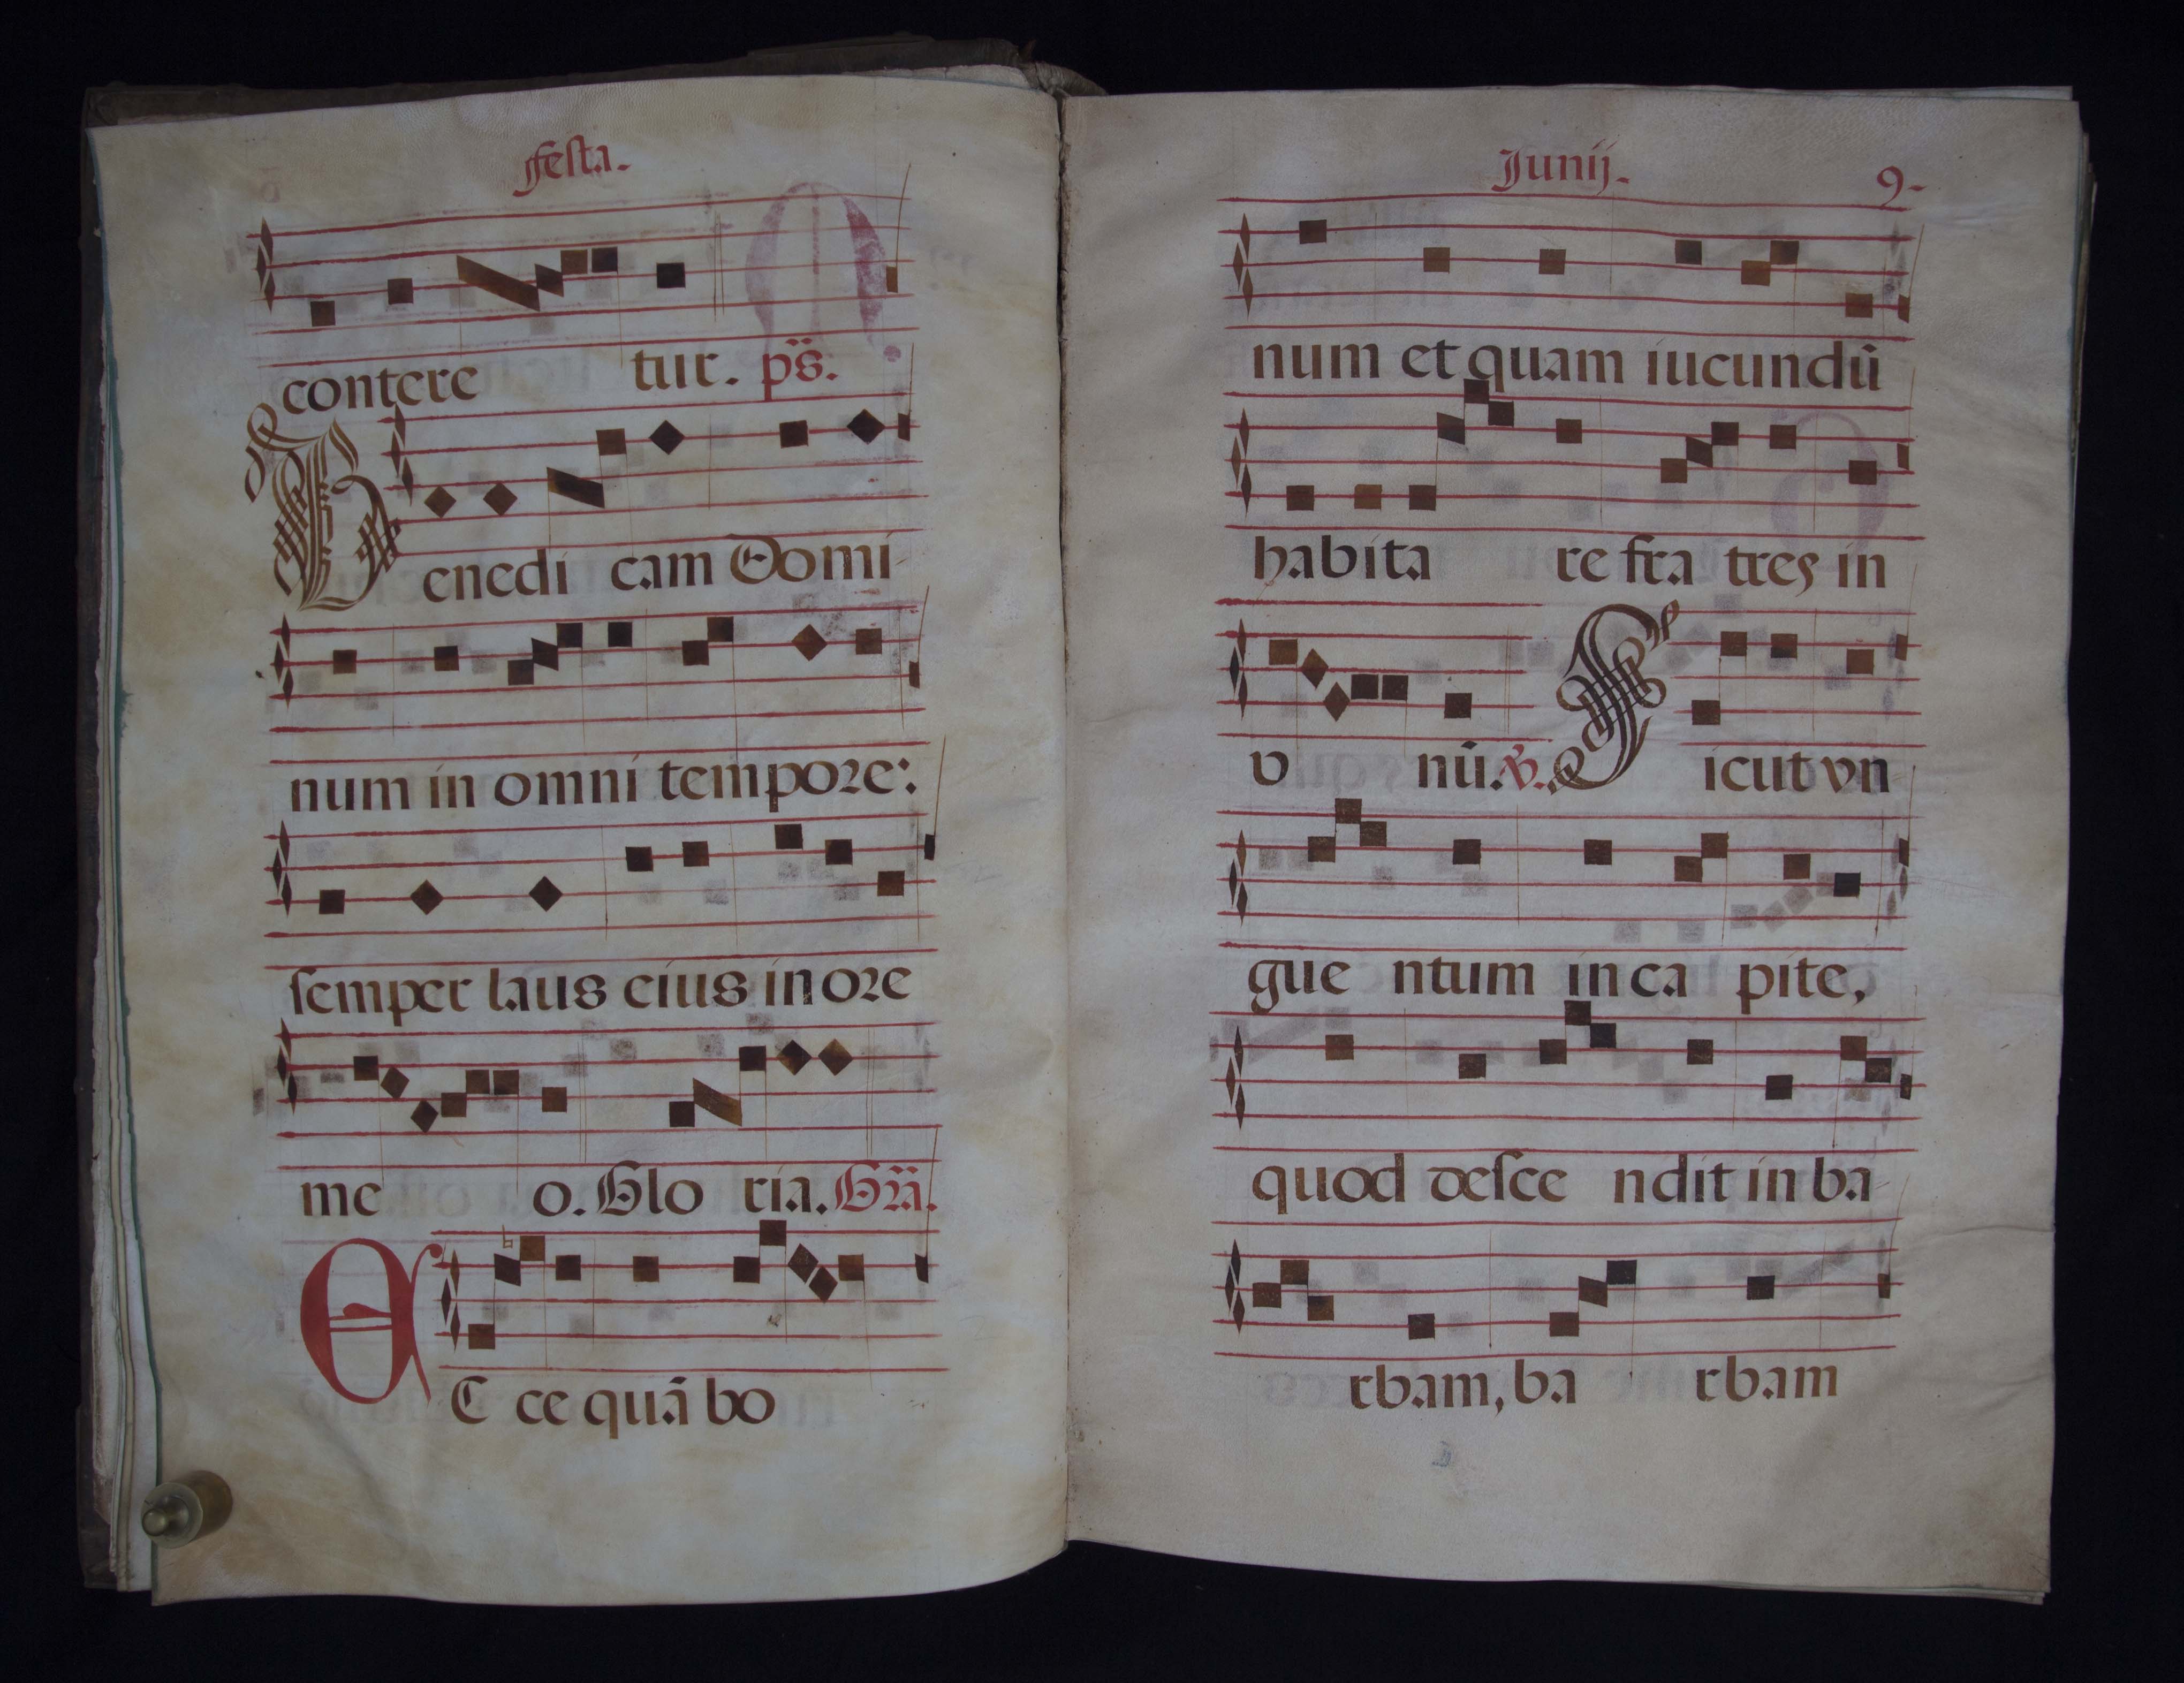 Festa.
contere tur. ps̈.
Benedi cam Domi
num in omni tempore:
semper laus eius in ore
me o. Glo ria. Gr̈a.
EC ce quā bo
Junij. 9.
num et quam iucundū
habita re fra tres in
v nū. ℣. Sicut vn
gue ntum in ca pite,
quod desce ndit in ba
rbam, ba rbam